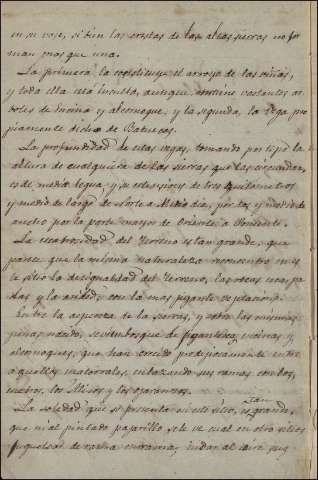 en su vase, si bien las crestas de las altas sierras no for
man mas que una.
La primera la constituye el arroyo de las viñas,
y toda ella está inculta, aunque contiene bastantes ar
boles de Encina y alcornoque, y la segunda, la Vega pro
piamente dicha de Batuecas.
La profundidad de estas vegas, tomando por tipo la
altura de cualquiera de las sierras que las circundan,
es de media legua y su extension de tres quilometros
y medio de largo de Norte a Medio dia, por tres y medio de
ancho por la parte mayor de Oriente a Poniente.
La escabrosidad del terreno es tan grande, que
parece que la misma naturaleza reconcentró en es
te sitio la desigualdad del terreno, las rocas
y la aridez, con la mas gigante vejetacion.
Entre la aspereza de la sierra, y entre las mismas
peñas nacido, se vé un bosque de gigantescas encinas y
alcornoques, que han crecido prodijiosamente entre
aquellos matorrales, enlazando sus ramas con los
enebros, los Alisos y los
La soledad que se presenta en este sitio, es tan grande,
que ni al pintado pajarillo se le ve cual en otros sitios
juguetear de rama en rama,